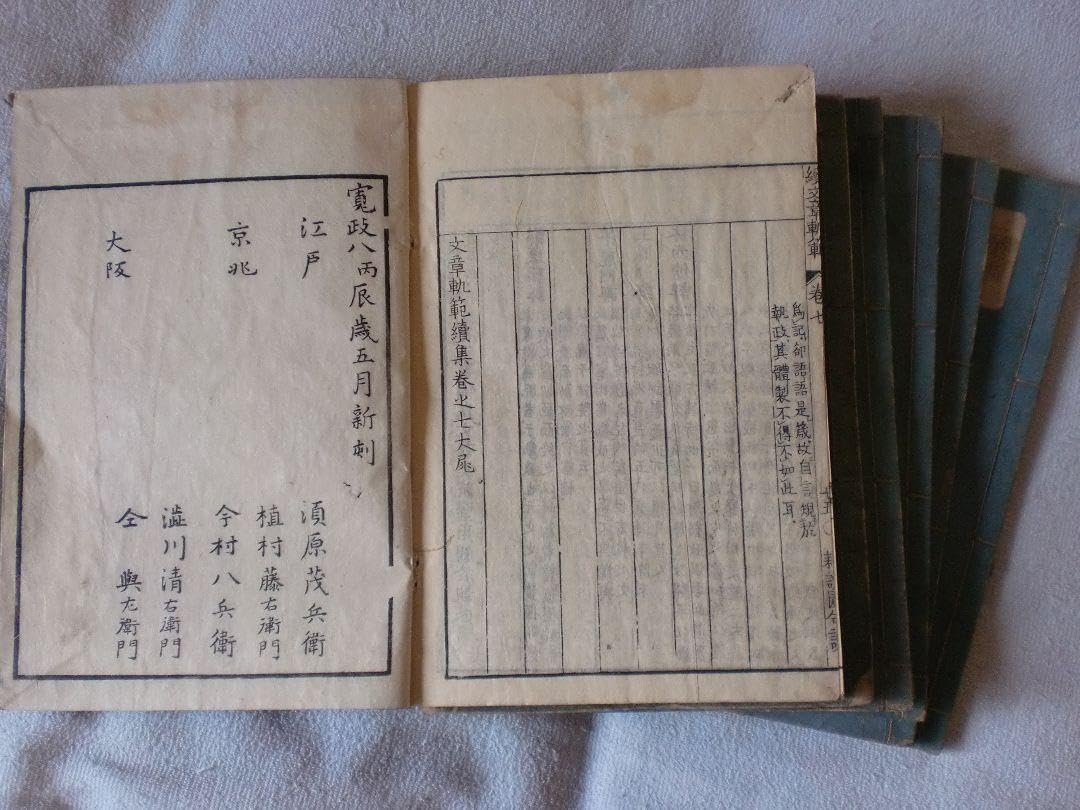 續文章軌範
卷七
爲記卻語語是箴故自言規於
執政其體製不得不如此耳
文章軌範續集卷之七大尾
寬政八丙辰歲五月新刻
江戶
須原茂兵衛
植村藤右衛門
京兆
今村八兵衛
大阪
澁川清右衛門
仝與左衛門